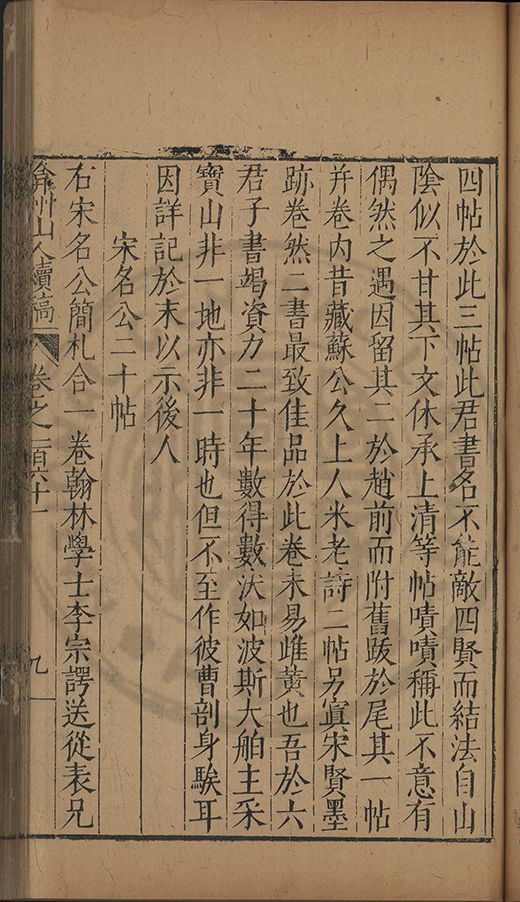 四帖於此三帖此君書名不能敵四賢而結法自山
陰似不甘其下文休承上清等帖嘖嘖稱此不意有
偶然之遇因留其二於趙前而附舊跋於尾其一帖
并卷内昔藏蘇公久上人米老詩二帖另寘宋賢墨
跡卷然二書最致佳品於此卷未易雌黄也吾於六
君子書竭資力二十年數得數汰如波斯大舶主采
寶山非一地亦非一時也但不至作彼曹剖身騃耳
因詳記於末以示後人
宋名公二十帖
右宋名公簡札合一卷翰林學士李宗諤送從表兄
弇州山人續稿 卷之一百六十一 九